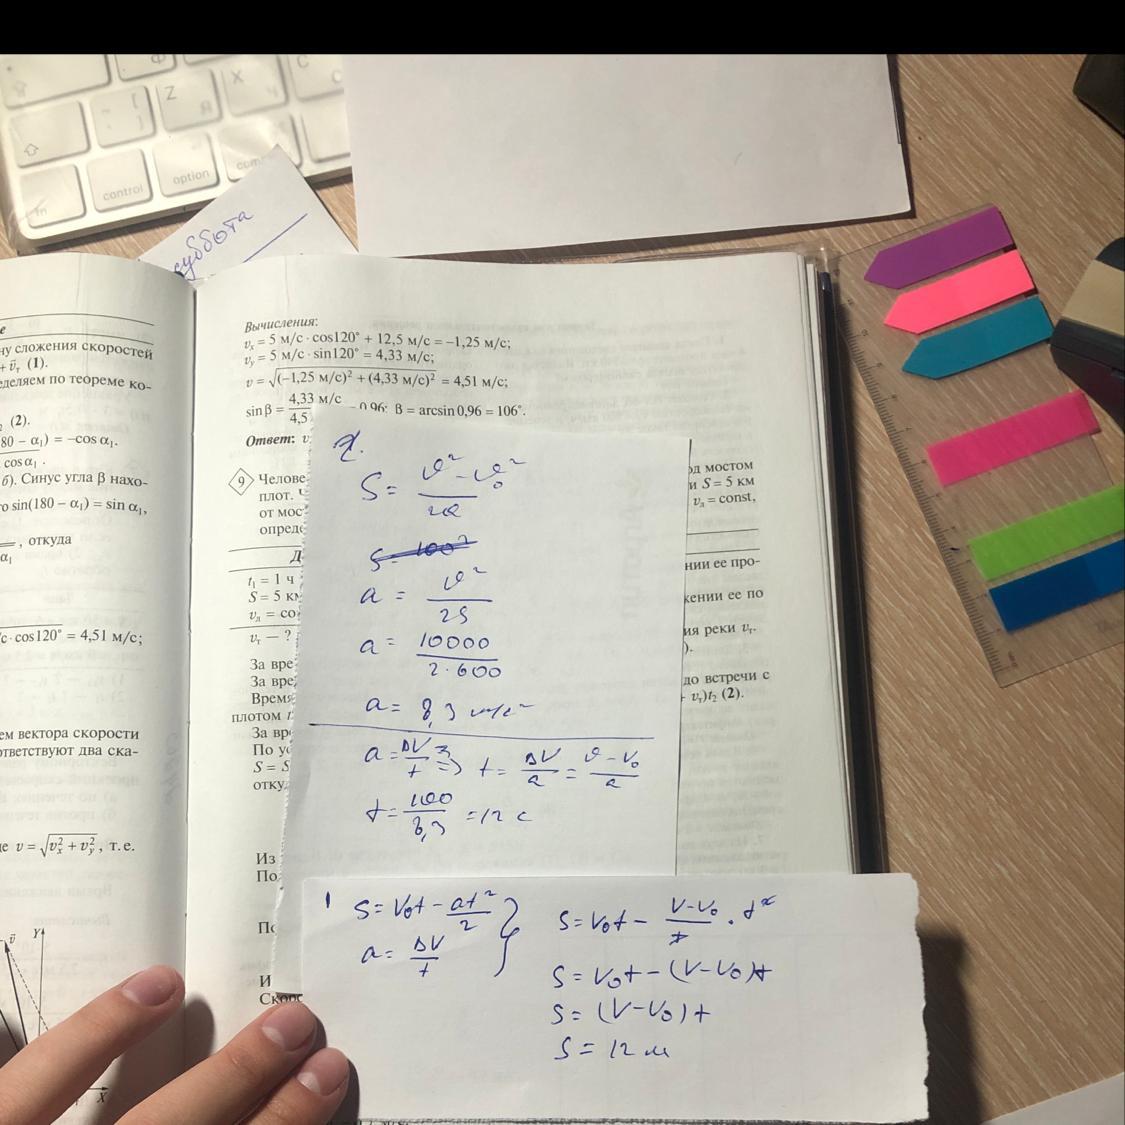 Z
Я
X
Ч
C
С
[
fn
control
option
com
суббота
е
ну сложения скоростей
(1).
еделяем по теореме ко-
(2).
80 − α₁) = −cos α₁.
cos α₁ .
б). Синус угла β нахо-
о sin(180 − α₁) = sin α₁,
, откуда
α₁
с · cos120° = 4,51 м/с;
ем вектора скорости
ответствуют два ска-
е v = √(vₓ² + vᵧ²), т.е.
Y
X
Вычисления:
vₓ = 5 м/с · cos120° + 12,5 м/с = −1,25 м/с;
vᵧ = 5 м/с · sin120° = 4,33 м/с;
v = √((−1,25 м/с)² + (4,33 м/с)²) = 4,51 м/с;
sin β = 4,33 м/с / 4,5 − 0,96; β = arcsin 0,96 = 106°.
Ответ: v
9 Челове од мостом
плот. Ч и S = 5 км
от мос vл = const,
опреде
Д
t₁ = 1 ч нии ее про-
S = 5 км жении ее по
vл = co
vт — ? ия реки vт.
).
За вре
За вре до встречи с
Время + vт)t₂ (2).
плотом
За вр
По ус
S = S
отку
Из
По
По
И
Скоро
2.
S = (v² − v₀²) / 2a
S = 100²
a = v² / 2S
a = 10000 / (2 · 600)
a = 8,3 м/с²
a = ΔV / t ⇒ t = ΔV / a = (v − v₀) / a
t = 100 / 8,3 = 12 c
1 S = V₀t − at² / 2
a = ΔV / t
S = V₀t − (V − V₀) / t · t²
S = V₀t − (V − V₀)t
S = (V − V₀)t
S = 12 м